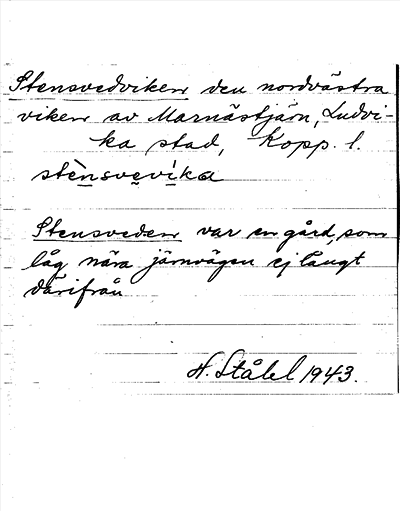 Stensvedviken den nordvästra
viken av Marnästjärn, Ludvi-
ka stad, Kopp. l.
stènsvevíka
Stensveden var en gård, som
låg nära järnvägen ej långt
därifrån
H. Ståhl 1943.